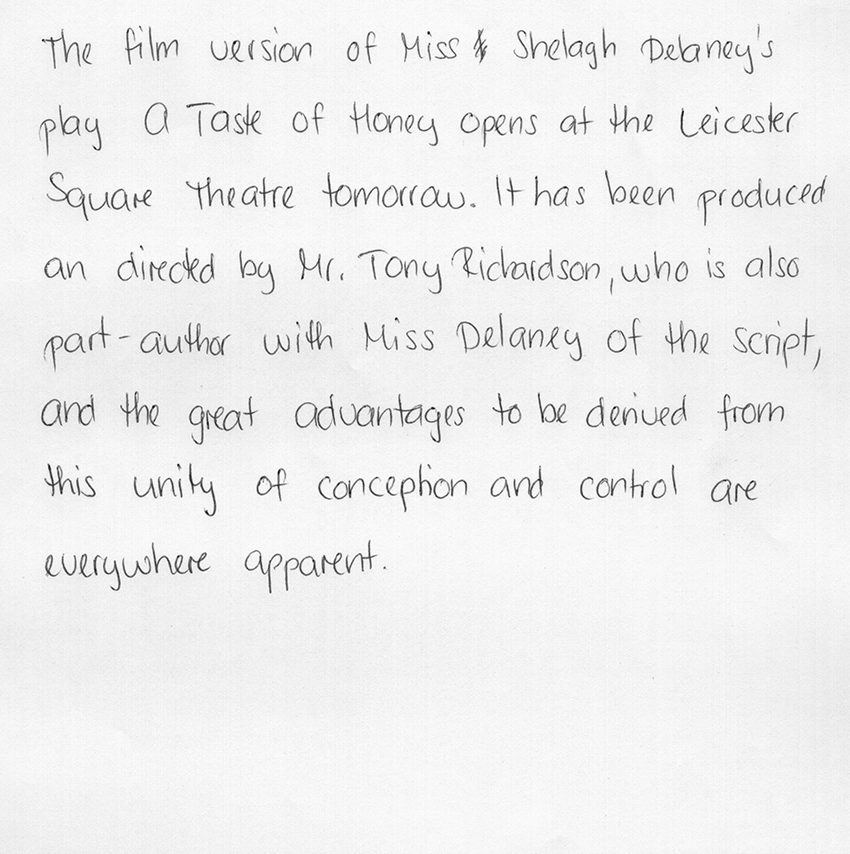 The film version of Miss Shelagh Delaney's
play A Taste of Honey opens at the Leicester
Square Theatre tomorrow. It has been produced
an directed by Mr. Tony Richardson, who is also
part-author with Miss Delaney of the script,
and the great advantages to be derived from
this unity of conception and control are
everywhere apparent.